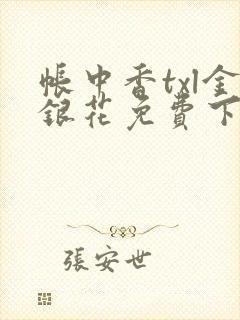 帳中香txl金
銀花免費下
張安世